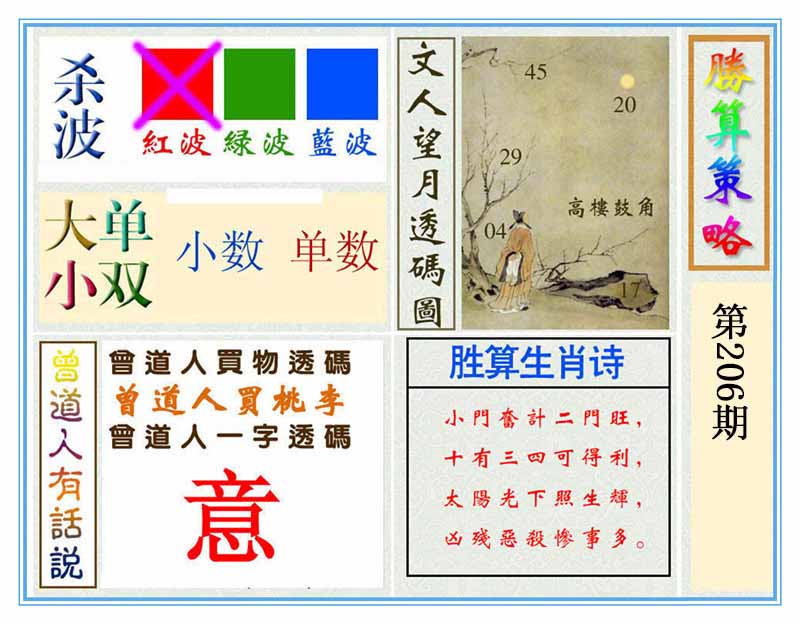 杀波
紅波 緑波 藍波
大单
小双
小数 单数
文人望月透碼圖
45
20
29
高樓鼓角
04
17
勝算策略
第206期
曾道人有話説
曾道人買物透碼
曾道人買桃李
曾道人一字透碼
意
胜算生肖诗
小門奮計二門旺，
十有三四可得利，
太陽光下照生輝，
凶殘惡殺慘事多。